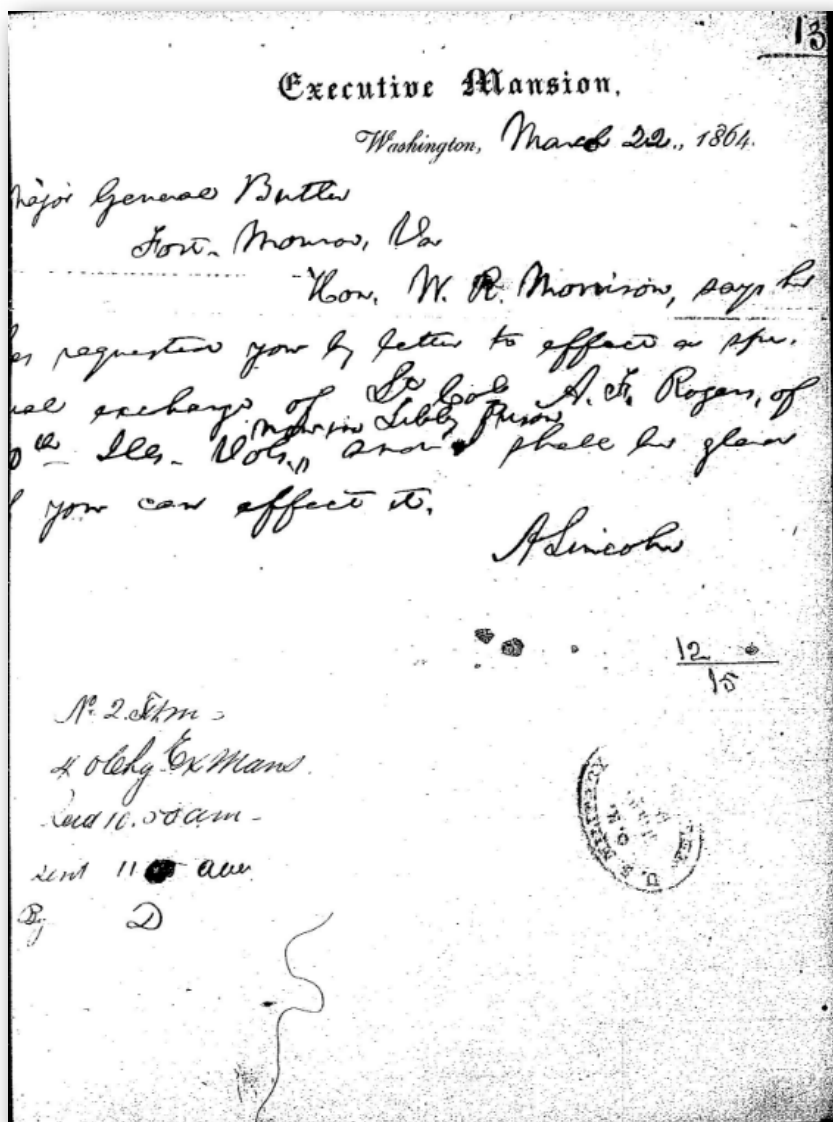 13
Executive Mansion,
Washington, March 22., 1864.
Major General Butler
Fort-Monroe, Va
Hon. W. R. Morrison, says he
has requested you by letter to effect a spe-
cial exchange of Lt Col. A. F. Rogers, of
now in Libby Prison
0th Ills. Vols., and I shall be glad
if you can effect it.
A Lincoln
12
15
No. 2.
4 Ex Mans.
Recd 10.50 am-
Sent 11 am
By D
U. S. MILITARY